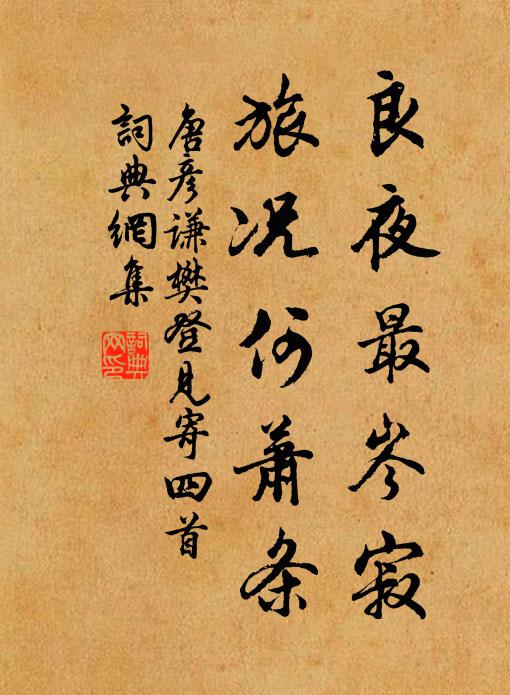 良夜最岑寂
旅况何萧条
唐彦谦樊登見寄四首
詞典網集
詞典
网印